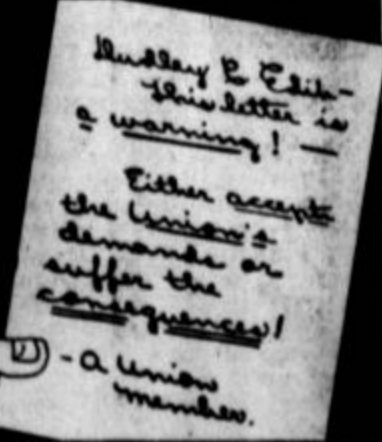 Dudley P. Edih-
This letter is
a warning! —
Either accepts
the Union's
demands or
suffer the
consequences!
- a Union
member.